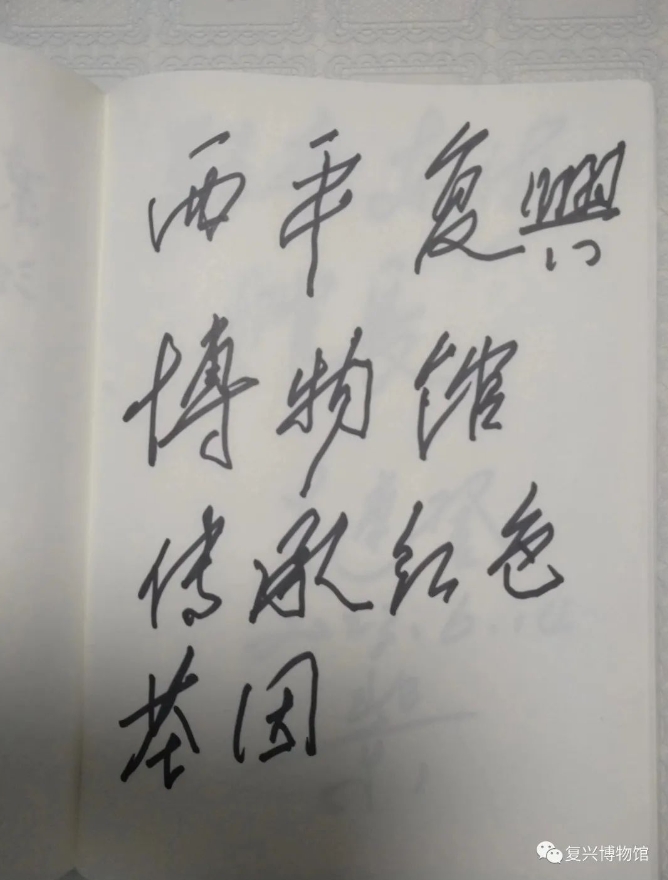 西平复興
博物馆
传承红色
基因
复兴博物馆